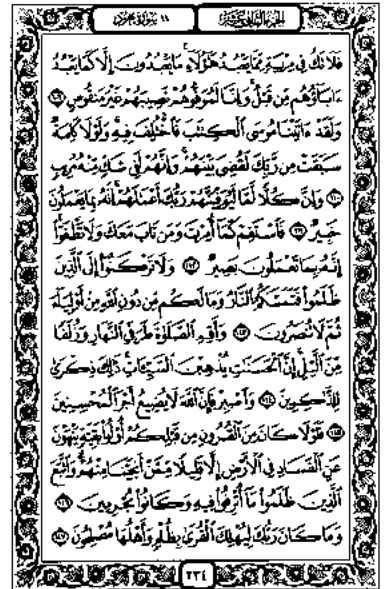 الجزء الثاني عشر
١١ سورة هود
فَلَا تَكُ فِي مِرْيَةٍ مِّمَّا يَعْبُدُ هَٰٓؤُلَآءِ ۚ مَا يَعْبُدُونَ إِلَّا كَمَا يَعْبُدُ
ءَابَآؤُهُم مِّن قَبْلُ ۚ وَإِنَّا لَمُوَفُّوهُمْ نَصِيبَهُمْ غَيْرَ مَنقُوصٍ ۝١٠٩
وَلَقَدْ ءَاتَيْنَا مُوسَى الْكِتَٰبَ فَاخْتُلِفَ فِيهِ ۚ وَلَوْلَا كَلِمَةٌ
سَبَقَتْ مِن رَّبِّكَ لَقُضِيَ بَيْنَهُمْ ۚ وَإِنَّهُمْ لَفِي شَكٍّ مِّنْهُ مُرِيبٍ
۝١١٠ وَإِنَّ كُلًّا لَّمَّا لَيُوَفِّيَنَّهُمْ رَبُّكَ أَعْمَٰلَهُمْ ۚ إِنَّهُ بِمَا يَعْمَلُونَ
خَبِيرٌ ۝١١١ فَاسْتَقِمْ كَمَآ أُمِرْتَ وَمَن تَابَ مَعَكَ وَلَا تَطْغَوْا ۚ
إِنَّهُ بِمَا تَعْمَلُونَ بَصِيرٌ ۝١١٢ وَلَا تَرْكَنُوٓا إِلَى الَّذِينَ
ظَلَمُوا فَتَمَسَّكُمُ النَّارُ وَمَا لَكُم مِّن دُونِ اللَّهِ مِنْ أَوْلِيَآءَ
ثُمَّ لَا تُنصَرُونَ ۝١١٣ وَأَقِمِ الصَّلَوٰةَ طَرَفَيِ النَّهَارِ وَزُلَفًا
مِّنَ الَّيْلِ ۚ إِنَّ الْحَسَنَٰتِ يُذْهِبْنَ السَّيِّـَٔاتِ ۚ ذَٰلِكَ ذِكْرَىٰ
لِلذَّٰكِرِينَ ۝١١٤ وَاصْبِرْ فَإِنَّ اللَّهَ لَا يُضِيعُ أَجْرَ الْمُحْسِنِينَ
۝١١٥ فَلَوْلَا كَانَ مِنَ الْقُرُونِ مِن قَبْلِكُمْ أُولُوا بَقِيَّةٍ يَنْهَوْنَ
عَنِ الْفَسَادِ فِي الْأَرْضِ إِلَّا قَلِيلًا مِّمَّنْ أَنجَيْنَا مِنْهُمْ ۗ وَاتَّبَعَ
الَّذِينَ ظَلَمُوا مَآ أُتْرِفُوا فِيهِ وَكَانُوا مُجْرِمِينَ ۝١١٦
وَمَا كَانَ رَبُّكَ لِيُهْلِكَ الْقُرَىٰ بِظُلْمٍ وَأَهْلُهَا مُصْلِحُونَ ۝١١٧
٢٣٤